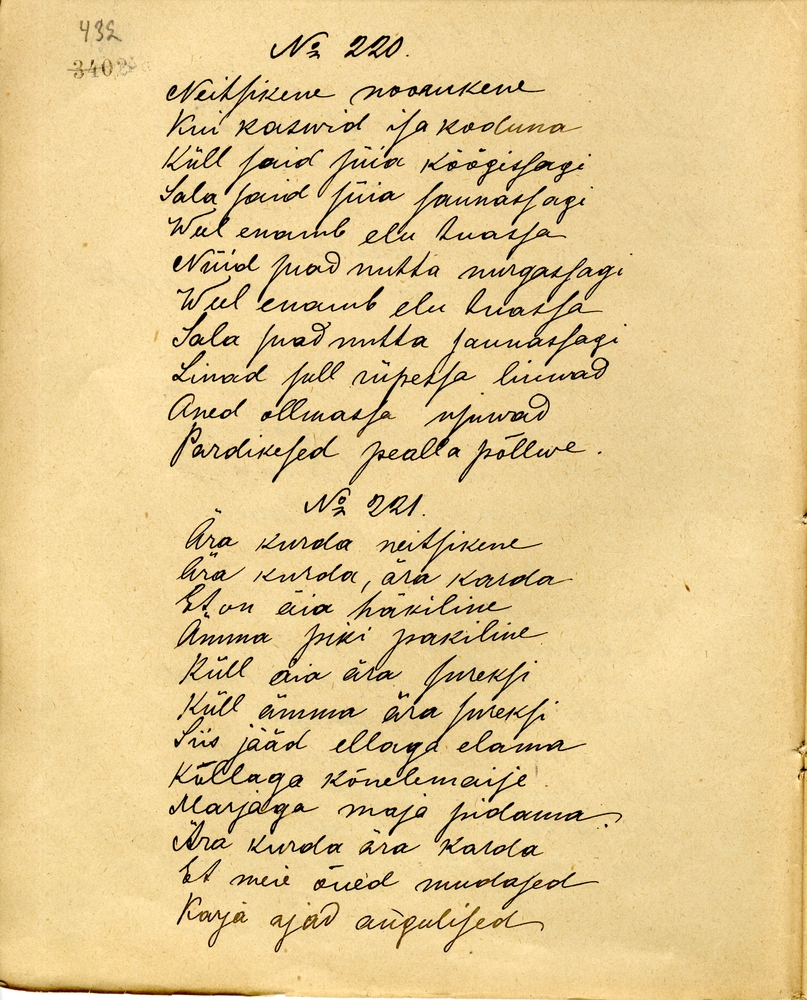 432
3402
№ 220.
Neitsikene noorukene
Kui kaswid isa koduna
Küll said süia köögissagi
Sala said süia saunassagi
Weel enamb elu tuassa
Nüid puad nutta nurgassagi
Weel enamb elu tuassa
Sala puad nutta saunassagi
Linad sull rüpessa linwad
Aned ollmassa ujuwad
Pardikesed pealla põllwe.
№ 221.
Ära kurda neitsikene
Ära kurda, ära karda
Et on äia häkiline
Ämma piki pakiline
Küll äia ära sureksi
Küll ämma ära sureksi
Siis jääd ellaga elama
Kullaga kõnelemaije
Marjaga maja pidama.
Ära kurda ära karda
Et meie õued mudased
Karja ajad augulised